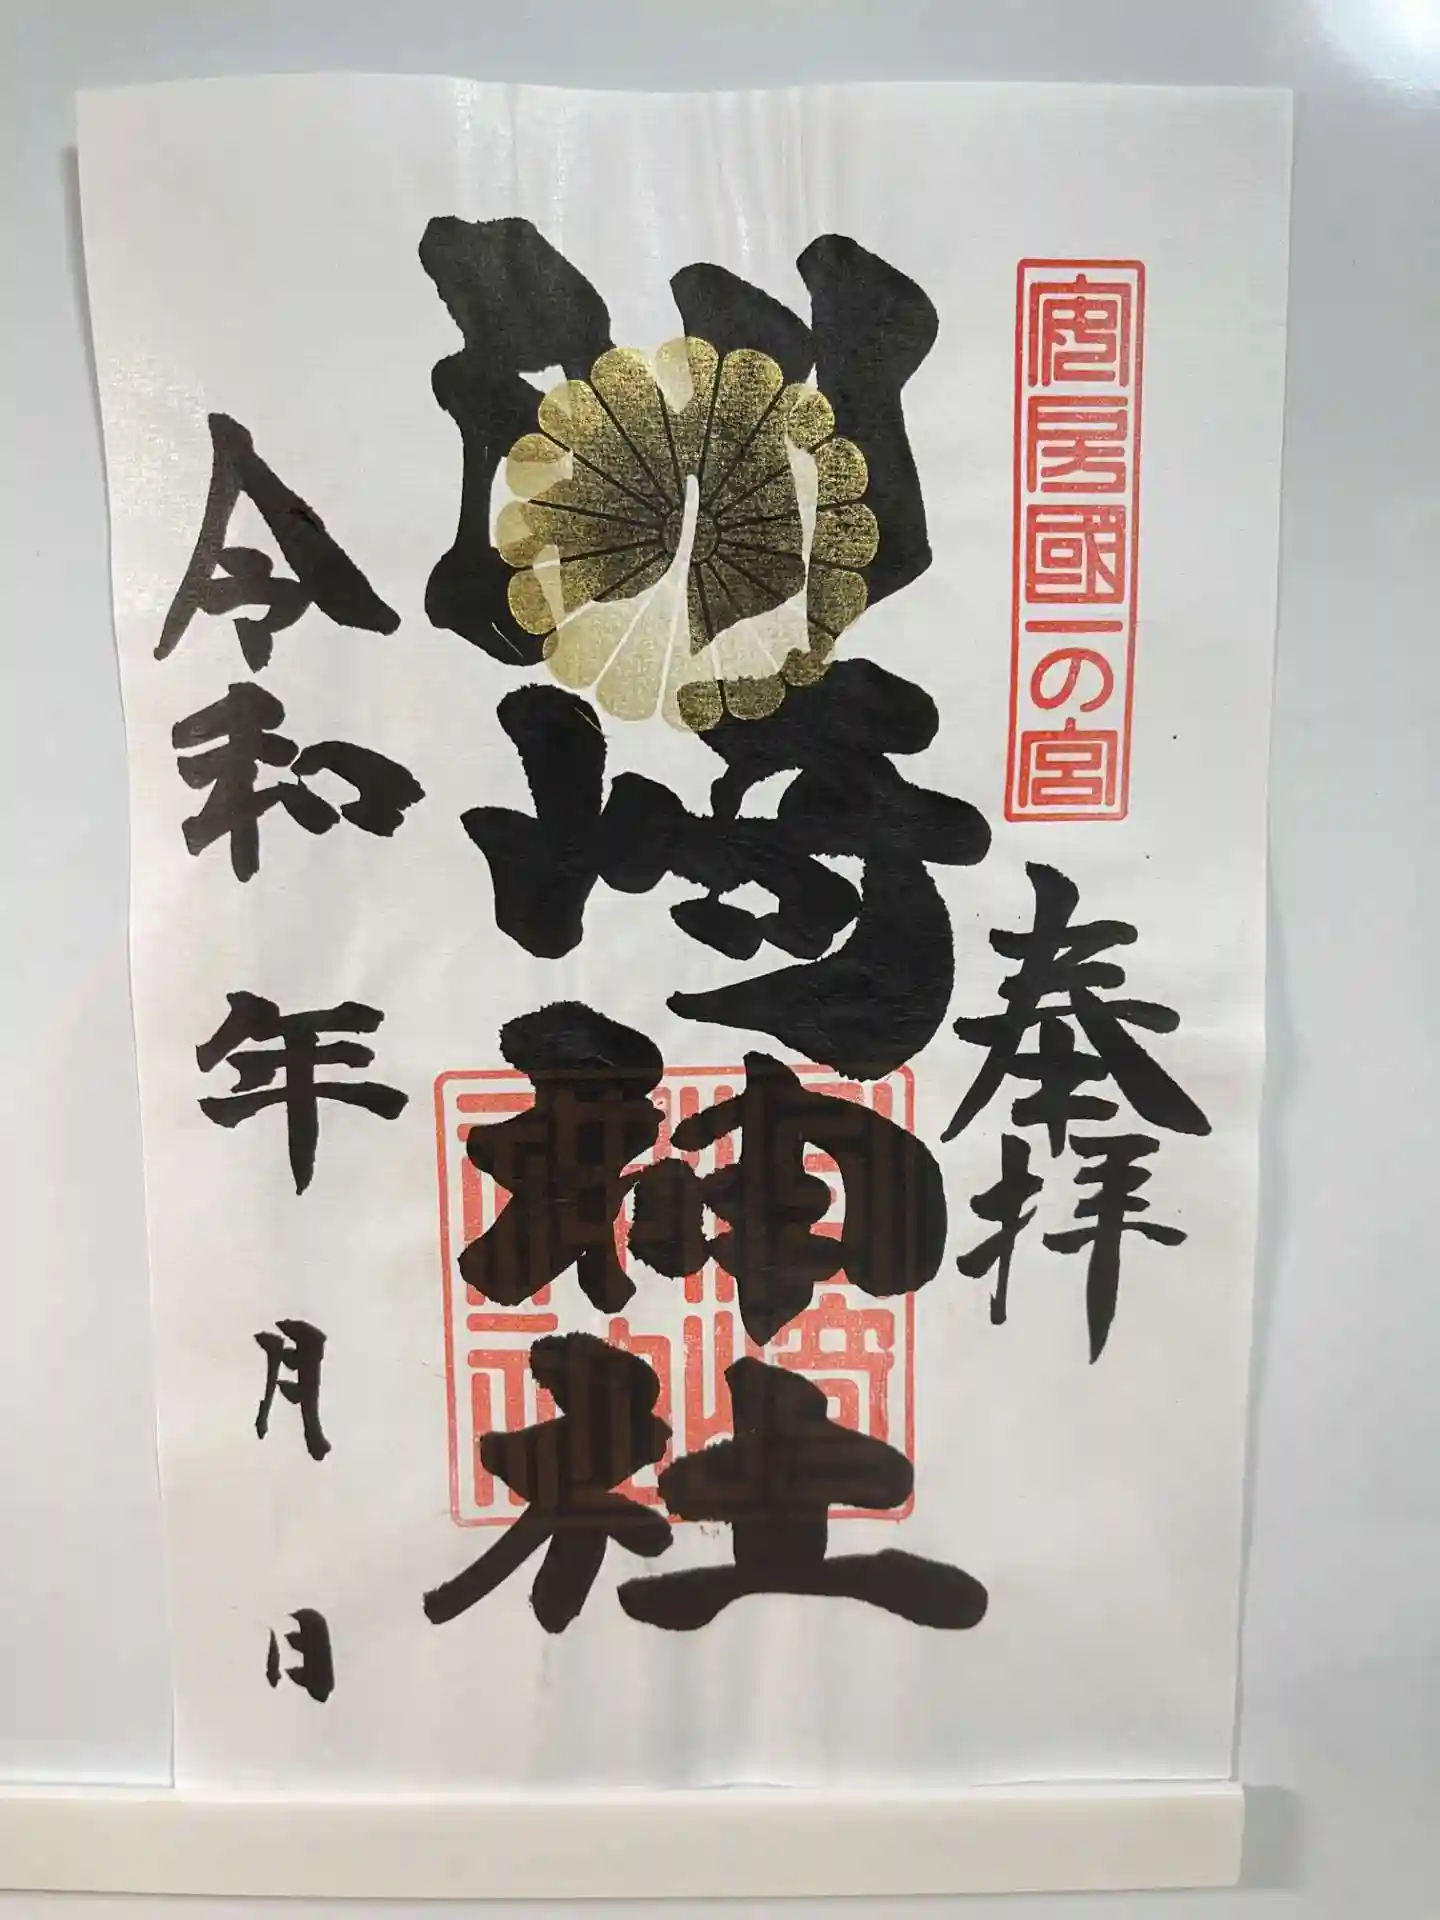 安房國一の宮
奉拝
洲崎神社
令和 年 月 日